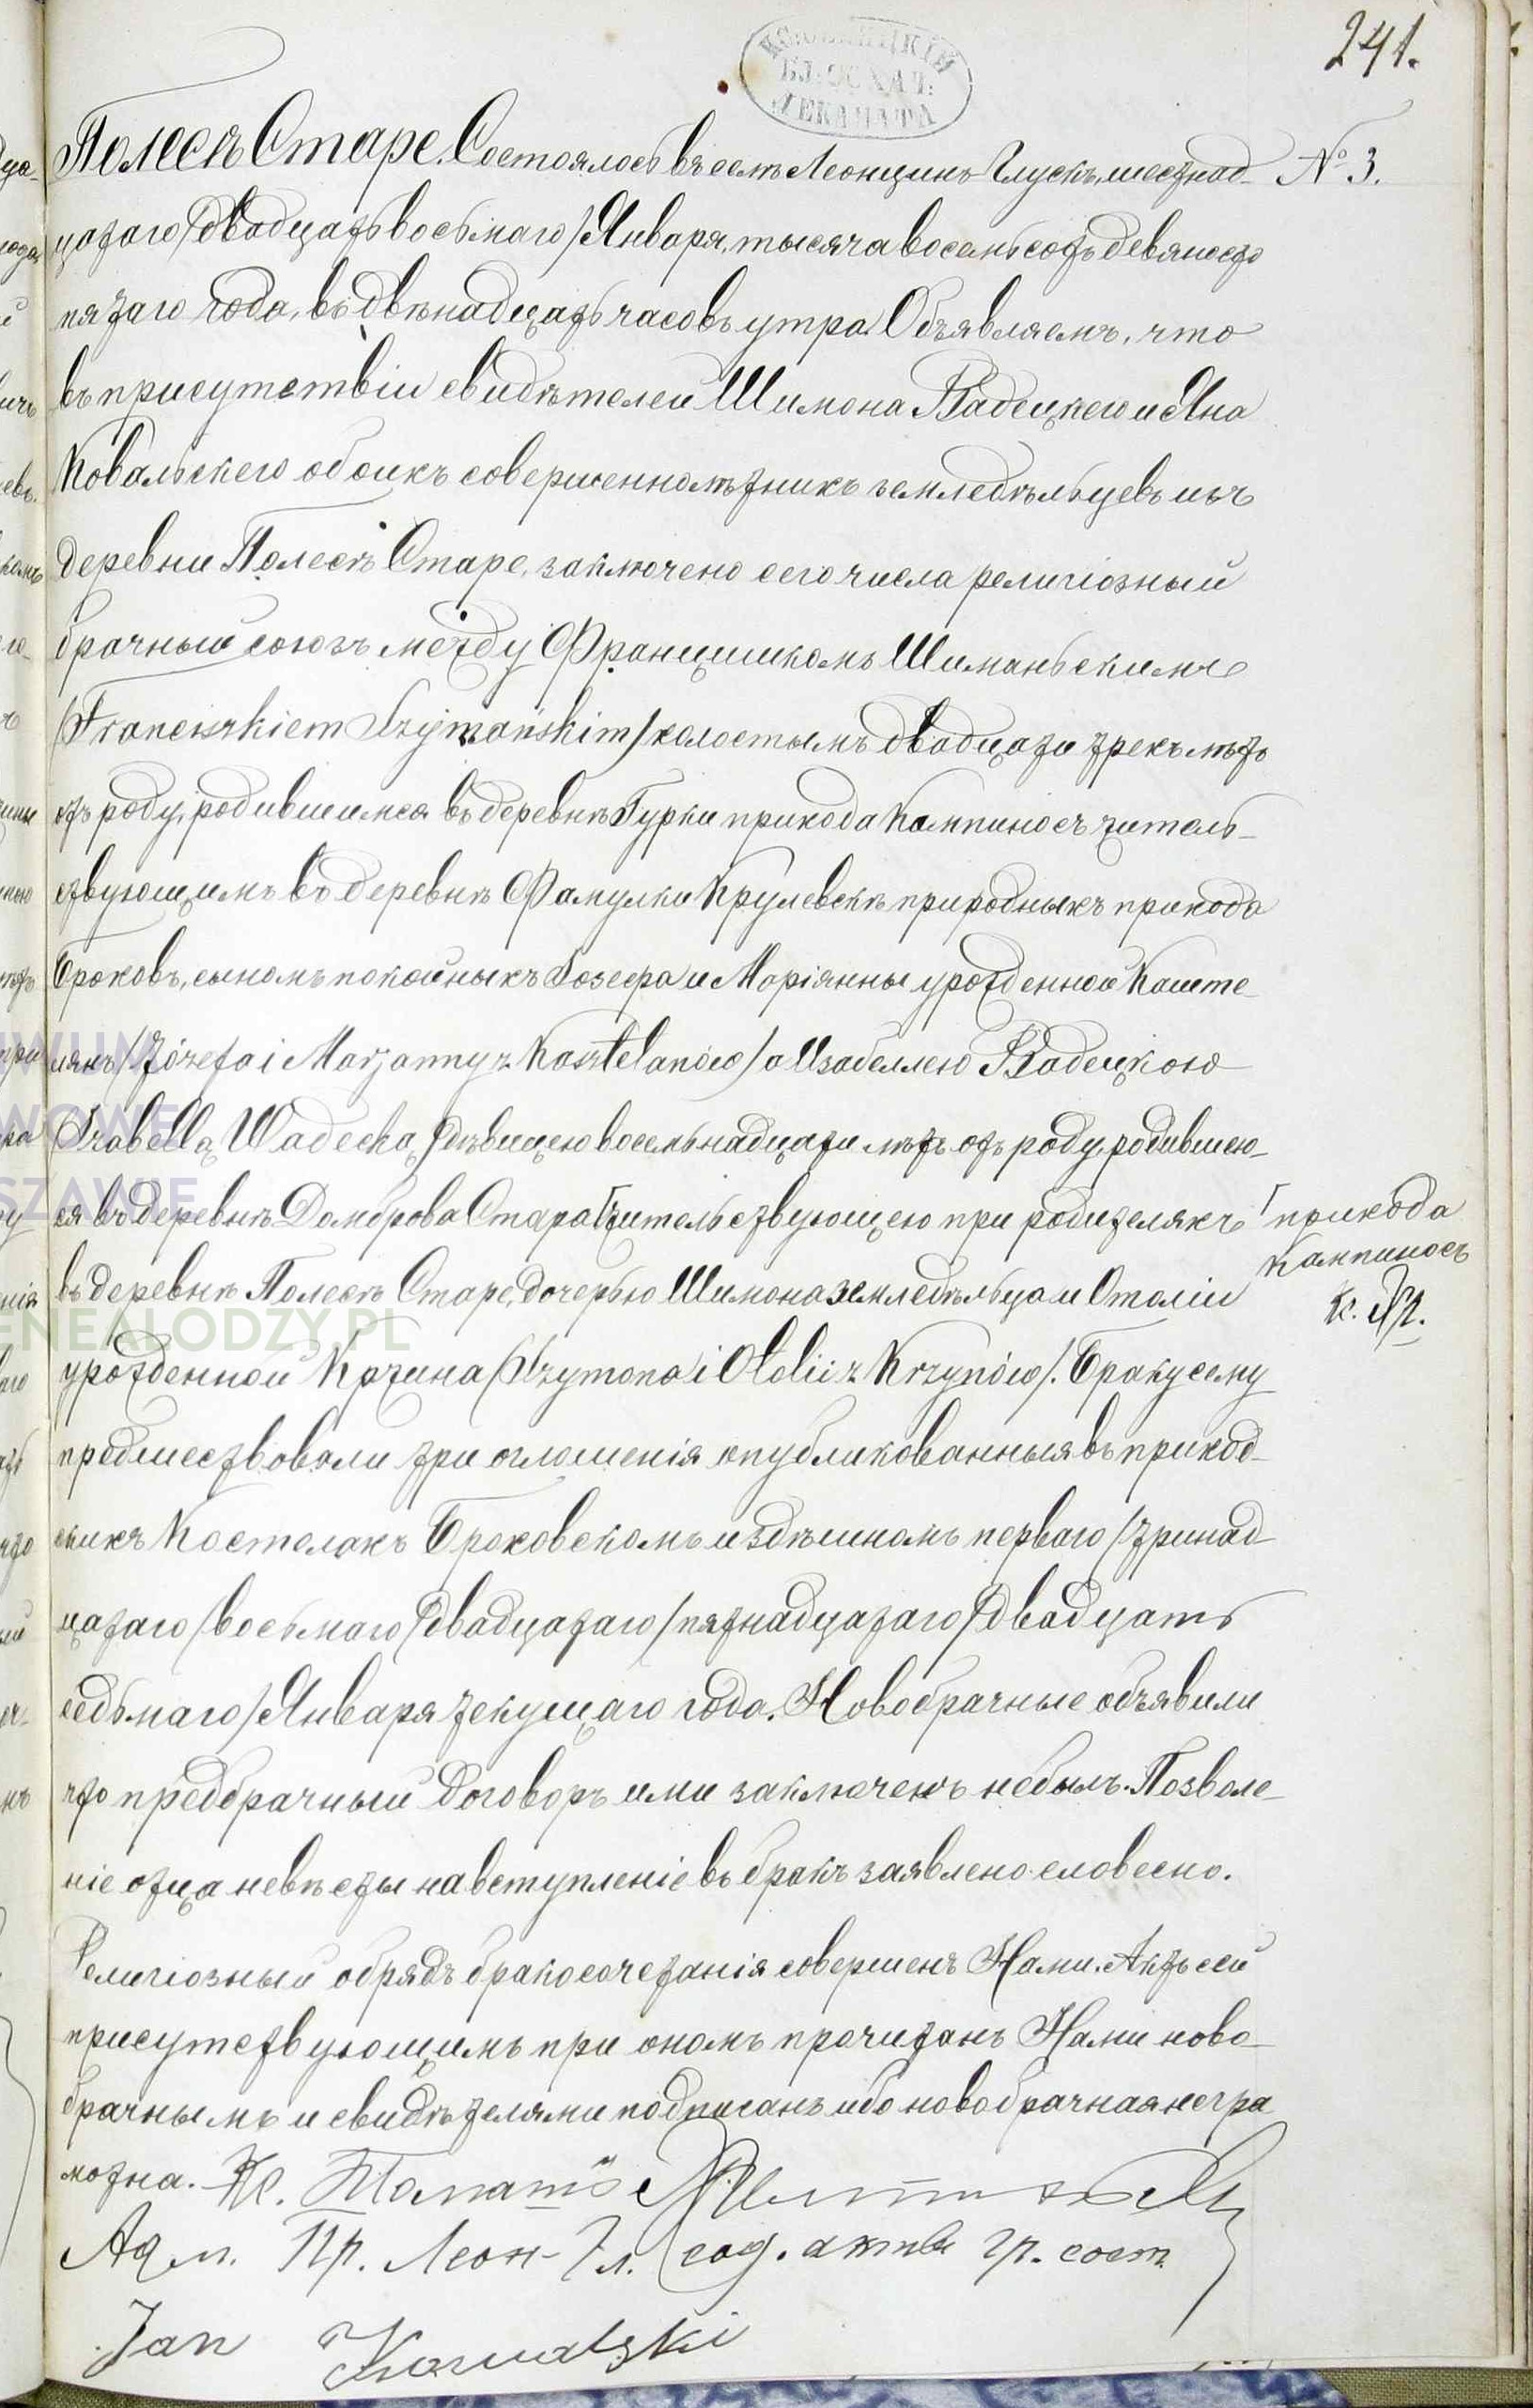 241.
Полесѣ Старе. Состоялось въ селѣ Леонцинъ Глускъ, шестнад- № 3.
цатаго /двадцать восьмаго/ Января, тысяча восемьсотъ девяносто
пятаго года, въ двѣнадцать часовъ утра. Объявляемъ, что
въ присутствіи свидѣтелей Шимона Вадецкего и Яна
Ковальскего обоихъ совершеннолѣтнихъ земледѣльцевъ изъ
деревни Полесѣ Старе, заключено сего числа религіозный
брачный союзъ между Францишкомъ Шиманьскимъ
/Franciszkiem Szymańskim/ холостымъ двадцати трехъ лѣтъ
отъ роду, родившимся въ деревнѣ Гурки прихода Кампиносъ житель-
ствующимъ въ деревнѣ Фамулки Крулевскѣ при родныхъ прихода
Броховъ, сыномъ покойныхъ Іозефа и Маріянны урожденной Каште-
лянъ /Józefa i Marjanny z Kasztelanów/ а Изабеллею Вадецкою
/Izabellą Wadecką/ дѣвицею восемьнадцати лѣтъ отъ роду, родившею-
ся въ деревнѣ Домброва Стара жительствующею при родителяхъ
прихода
Кампиносъ
въ деревнѣ Полесѣ Старе, дочерью Шимона земледѣльца и Отоліи
урожденной Кржина /Szymona i Otolii z Krzynów/. Браку сему
предшествовали три оглошенія опубликованныя въ приход-
скихъ Костелахъ Броховскомъ и здѣшномъ перваго /тринад-
цатаго/ восьмаго /двадцатаго/ пятнадцатаго /двадцать
седьмаго/ Января текущаго года. Новобрачные объявили
что предбрачный договоръ ими заключенъ небылъ. Позволе-
ніе отца невѣсты на вступленіе въ бракъ заявлено словесно.
Религіозный обрядъ бракосочетанія совершенъ Нами. Актъ сей
присутствующимъ при ономъ прочитанъ Нами ново-
брачнымъ и свидѣтелями подписанъ ибо новобрачная негра
мотна. Кс.
Адм. Пр. Леон-Гл. сод. акты гр. сост.
Jan Kowalski